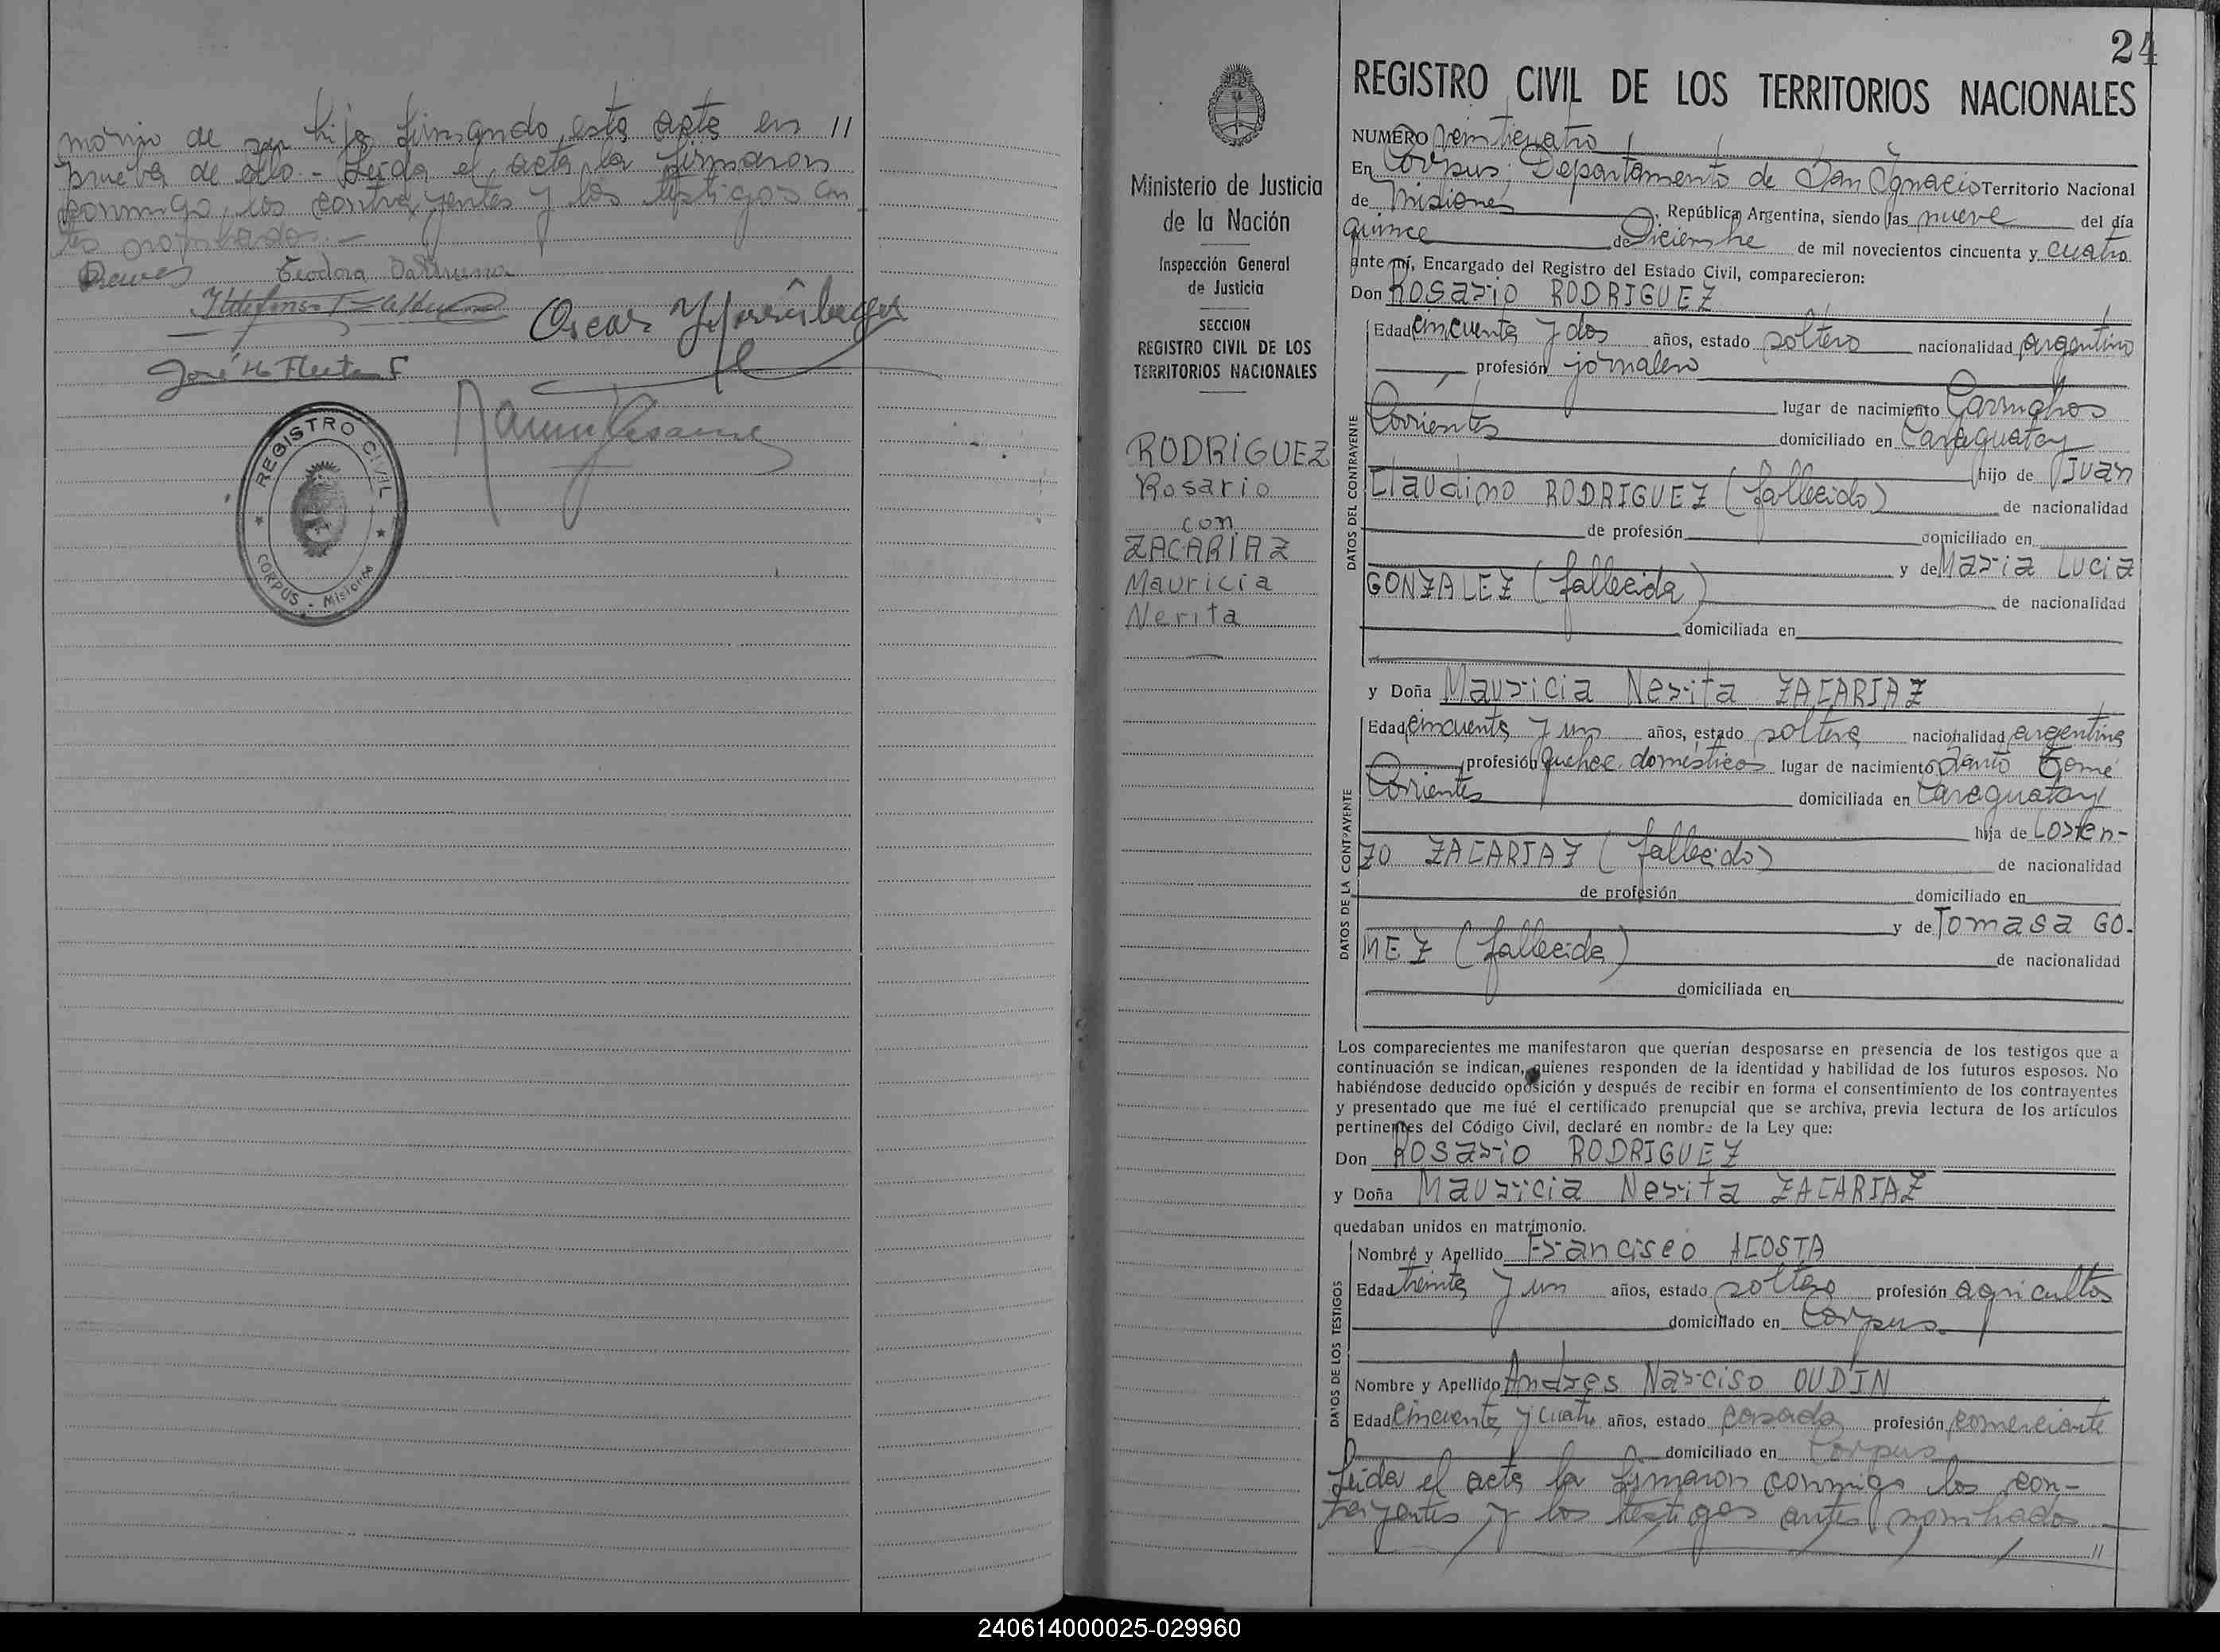 monio de su hijo firmando esta acta en //
prueba de ello.- Leida el acta la firmaron
conmigo, los contrayentes y los testigos an-
tes nombrados.-
Teodora
Oscar
José
REGISTRO CIVIL
CORPUS - Misiones
24
REGISTRO CIVIL DE LOS TERRITORIOS NACIONALES
Ministerio de Justicia
de la Nación
Inspección General
de Justicia
SECCION
REGISTRO CIVIL DE LOS
TERRITORIOS NACIONALES
RODRIGUEZ
Rosario
con
ZACARIAZ
Mauricia
Nerita
NUMERO Veinticuatro
En Corpus, Departamento de San Ignacio Territorio Nacional
de Misiones, República Argentina, siendo las nueve del día
quince de Diciembre de mil novecientos cincuenta y cuatro
ante mí, Encargado del Registro del Estado Civil, comparecieron:
Don Rosario RODRIGUEZ
DATOS DEL CONTRAYENTE
Edad cincuenta y dos años, estado soltero nacionalidad argentino
profesión jornalero
lugar de nacimiento Garruchos
Corrientes domiciliado en Caraguatay
hijo de Juan
Claudino RODRIGUEZ (fallecido) de nacionalidad
de profesión domiciliado en
y de Maria Lucia
GONZALEZ (fallecida) de nacionalidad
domiciliada en
y Doña Mauricia Nerita ZACARIAZ
DATOS DE LA CONTRAYENTE
Edad cincuenta y un años, estado soltera nacionalidad argentina
profesión quehac. domésticos lugar de nacimiento Santo Tomé
Corrientes domiciliada en Caraguatay
hija de Loren-
zo ZACARIAZ (fallecido) de nacionalidad
de profesión domiciliado en
y de Tomasa GO-
MEZ (fallecida) de nacionalidad
domiciliada en
Los comparecientes me manifestaron que querían desposarse en presencia de los testigos que a
continuación se indican, quienes responden de la identidad y habilidad de los futuros esposos. No
habiéndose deducido oposición y después de recibir en forma el consentimiento de los contrayentes
y presentado que me fué el certificado prenupcial que se archiva, previa lectura de los artículos
pertinentes del Código Civil, declaré en nombre de la Ley que:
Don Rosario RODRIGUEZ
y Doña Mauricia Nerita ZACARIAZ
quedaban unidos en matrimonio.
DATOS DE LOS TESTIGOS
Nombre y Apellido Francisco ACOSTA
Edad treinta y un años, estado soltero profesión agricultor
domiciliado en Corpus
Nombre y Apellido Andres Narciso OUDIN
Edad Cincuenta y cuatro años, estado casado profesión comerciante
domiciliado en Corpus
Leida el acta la firmaron conmigo los con-
trayentes y los testigos antes nombrados -
//
240614000025-029960